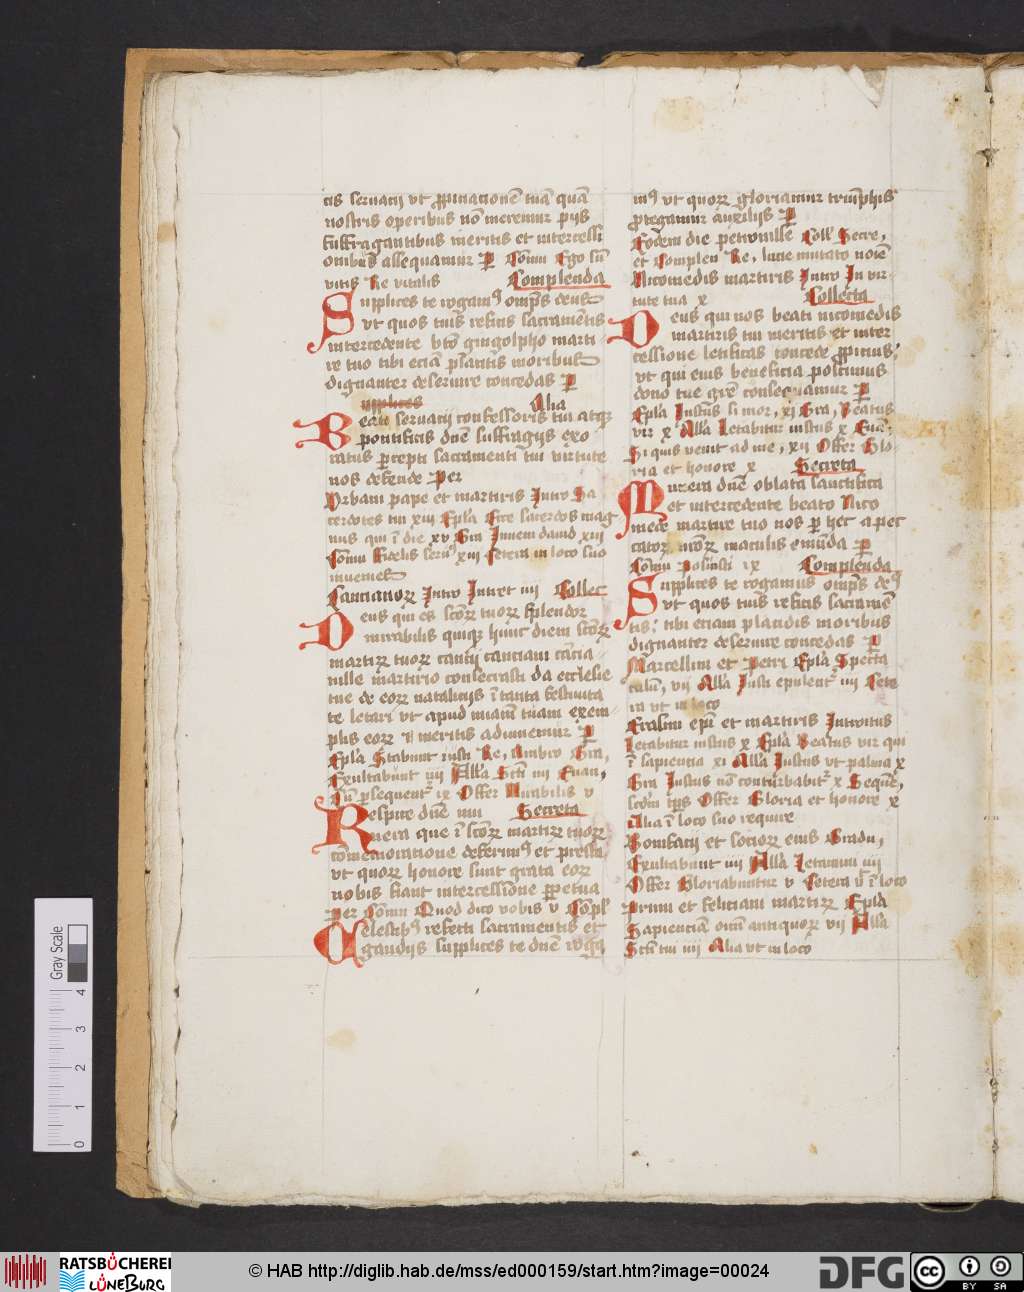 cis servacij vt ꝓpiciacionē tuā quā
nostris operibus nō meremur pijs
suffragantibus meritis et intercessi
onibus assequamur P Cōmu Ego sū
vitis Re vitalis Complenda
Supplices te rogamꝰ omps deus
vt quos tuis reficis sacramētis
intercedente bto gingolpho marti
re tuo tibi eciā placitis moribus
dignanter deservire concedas P
supplices Alia
Beati servacij confessoris tui atqꝫ
pontificis dne suffragijs exo
ratus percepti sacramenti tui virtute
nos defende Per
Urbani pape et martiris Intro Sa
cerdotes tui xiii Epla Ecce sacerdos mag
nus qui ī die xv Gra Inveni david xiii
Cōmu Fidelis servꝰ xii Cetera in loco suo
invenies
Cancianoꝝ Intro Intret iiii Collec
Deus qui es scōꝝ tuoꝝ splendor
mirabilis quiqꝫ hunc diem scōꝝ
martiꝝ tuoꝝ cancij canciani cācia
nille martirio consecrasti da ecclesie
tue de eoꝝ natalicijs ī tanta festivita
te letari vt apud miam tuam exem
plis eoꝝ et meritis adiuvemur P
Epla Stabunt iusti Re, Gra,
Exultabunt iiii Alla Scti iiii Evan,
Cū persequent ix Offer Mirabilis v
Respice dne Secreta
que ī scōꝝ martiꝝ tuoꝝ
cōmemoratione deferimꝰ et presta
vt quoꝝ honore sunt grata eoꝝ
nobis fiant intercessione ꝑpetua
Per Cōmu Quod dico vobis v Cōpl
Celestibꝰ refecti sacramentis et
gaudijs supplices te dne roga
mꝰ vt quoꝝ gloriamur triūphis
protegamur auxilijs P
Eodem die petronille Coll Secre,
et Complen Re, lucie mutato noie
Nicomedis martiris Intro In vir
tute tua x Collecta
Deus qui nos beati nicomedis
martiris tui meritis et inter
cessione letificas concede ꝓpicius
vt qui eius beneficia poscimus
dono tue gre consequamur P
Epla Iustus si mor, xi Gra, Beatus
vir x Alla Letabitur iustus x Evā
Si quis venit ad me, xii Offer Glo
ria et honore x Secreta
Munera dne oblata sanctifica
et intercedente beato Nico
mede martire tuo nos per hec a pec
catoꝝ nrōꝝ maculis emūda P
Cōmu Posuisti ix Complenda
Supplices te rogamus omps deꝰ
vt quos tuis reficis sacramē
tis tibi etiam placidis moribus
dignanter deservire concedas P
Marcellini et Petri Epla Specta
culū, vii Alla Iusti epulent iiii Cete
ra vt in loco
Erasmi epi et martiris Introitus
Letabitur iustus x Epla Beatus vir qui
ī sapiencia xi Alla Iustus vt palma x
Gra Iustus nō conturbabit x Seque,
scdm Offer Gloria et honore x
Alia ī loco suo require
Bonifacij et socioꝝ eius Gradu,
Exultabunt iiii Alla Letamini iiii
Offer Gloriabuntur v Cetera ī loco
Primi et feliciani martiꝝ Epla
Sapienciam oīm antiquoꝝ vii Alla
Scti tui iiii Alia vt in loco
Gray Scale
0 1 2 3 4
RATSBÜCHEREI
LÜNEBURG
© HAB http://diglib.hab.de/mss/ed000159/start.htm?image=00024
DFG
cc BY SA